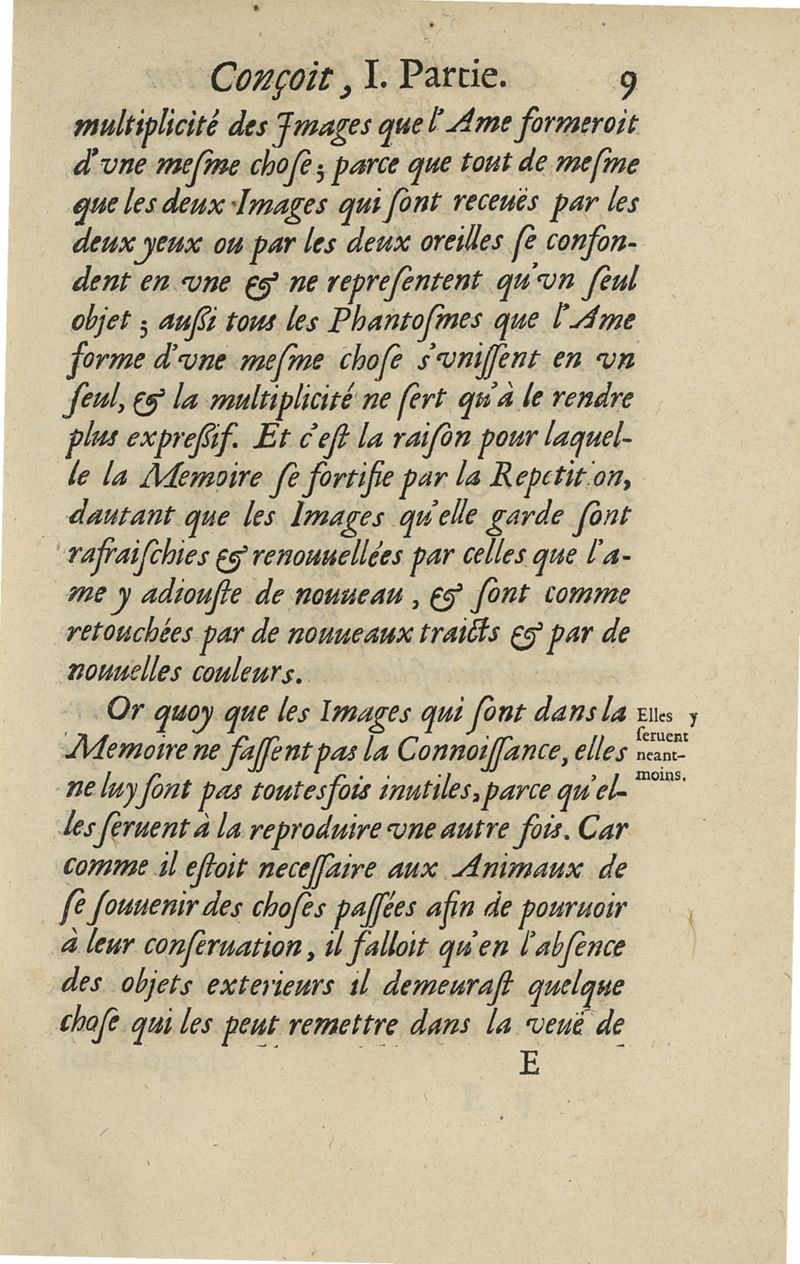 Conçoit, I. Partie. 9
multiplicité des Images que l'Ame formeroit
d'vne meſme choſe; parce que tout de meſme
que les deux Images qui ſont receuës par les
deux yeux ou par les deux oreilles ſe confon-
dent en vne & ne repreſentent qu'vn ſeul
objet; auſſi tous les Phantoſmes que l'Ame
forme d'vne meſme choſe s'vniſſent en vn
ſeul, & la multiplicité ne ſert qu'à le rendre
plus expreſſif. Et c'eſt la raiſon pour laquel-
le la Memoire ſe fortifie par la Repetition,
dautant que les Images qu'elle garde ſont
rafraiſchies & renouuellées par celles que l'a-
me y adiouſte de nouueau, & ſont comme
retouchées par de nouueaux traicts & par de
nouuelles couleurs.
Or quoy que les Images qui ſont dans la
Memoire ne faſſent pas la Connoiſſance, elles
ne luy ſont pas toutesfois inutiles, parce qu'el-
les ſeruent à la reproduire vne autre fois. Car
comme il eſtoit neceſſaire aux Animaux de
ſe ſouuenir des choſes paſſées afin de pouruoir
à leur conſeruation, il falloit qu'en l'abſence
des objets exterieurs il demeuraſt quelque
choſe qui les peut remettre dans la veuë de
Elles y
ſeruent
neant-
moins.
E